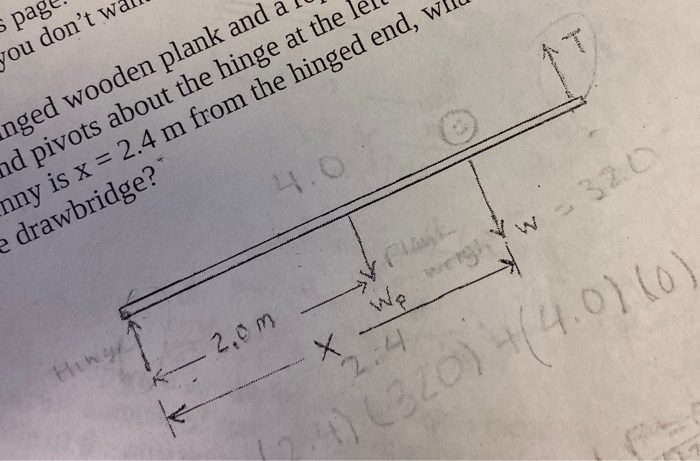 s page.
you don't
inged wooden plank and a
nd pivots about the hinge at the
nny is x = 2.4 m from the hinged end,
e drawbridge?
T
4.0
W = 320
Plank
weight
Wp
Hinge
2.0 m
X
2.4
(2.4)(320) + (4.0)(0)